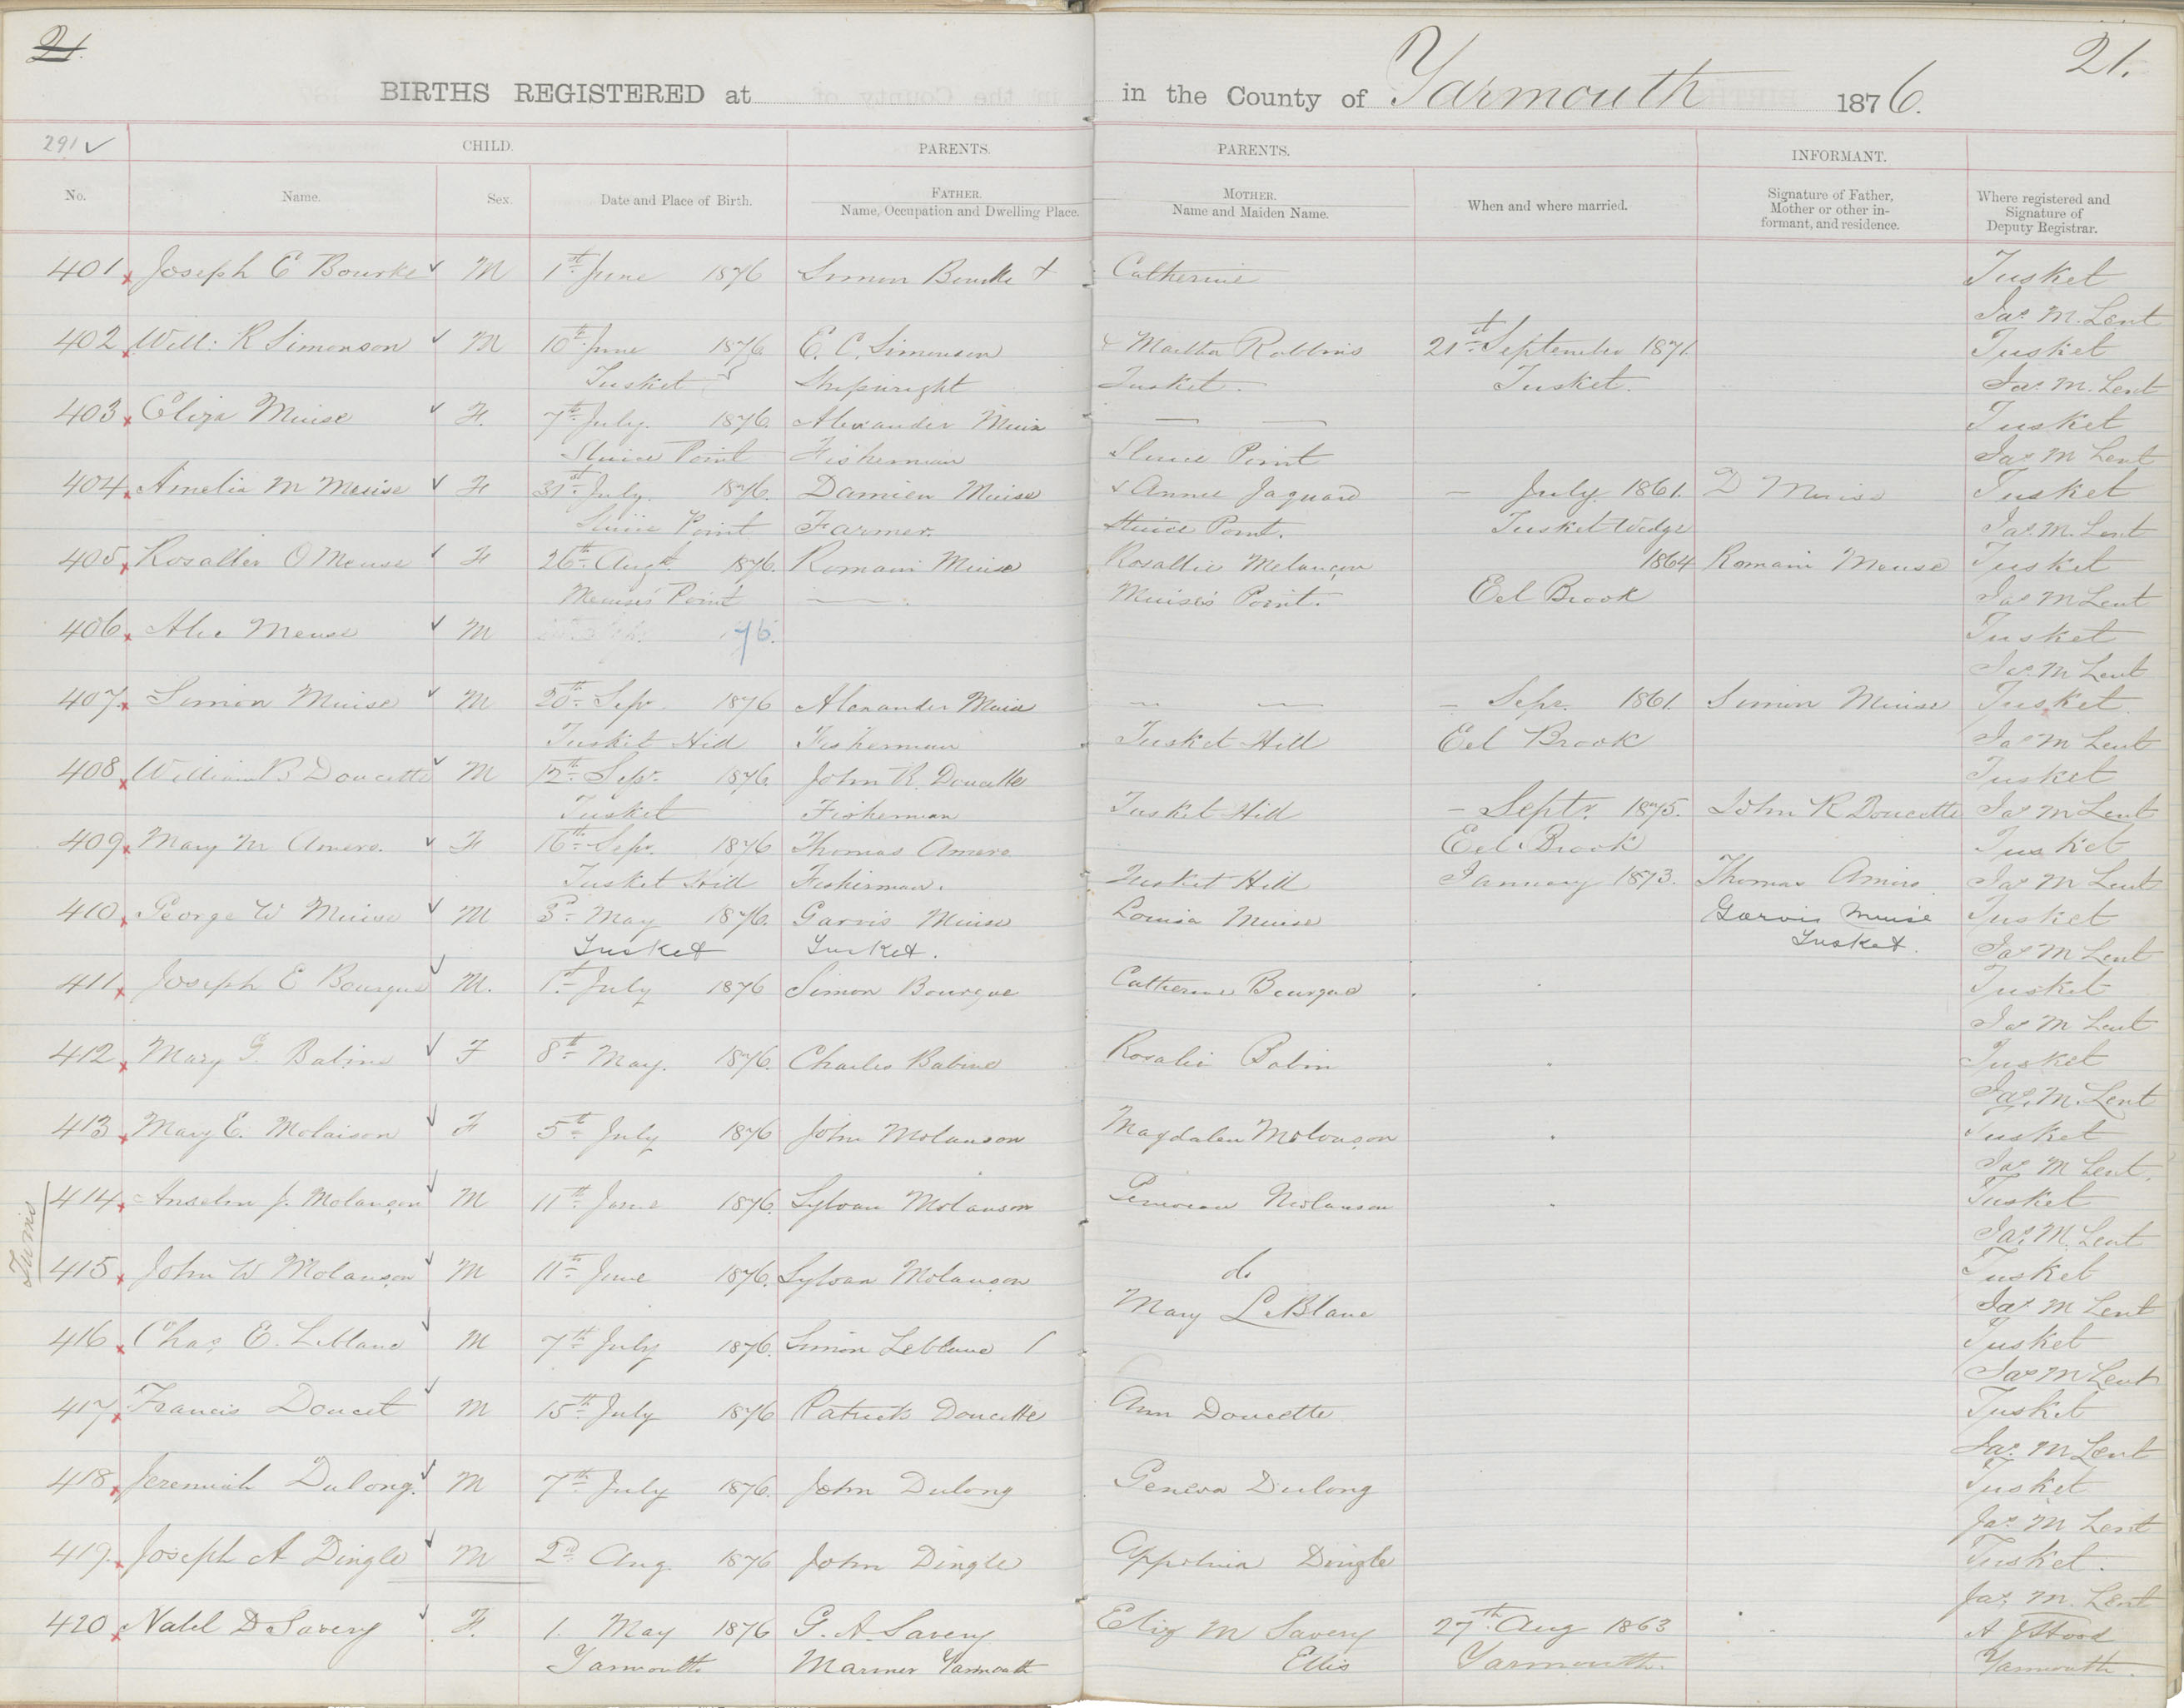 21.
21.
BIRTHS REGISTERED at
in the County of Yarmouth 1876.
291 ✓
CHILD.
PARENTS.
PARENTS.
INFORMANT.
No.
Name.
Sex.
Date and Place of Birth.
FATHER.
Name, Occupation and Dwelling Place.
MOTHER.
Name and Maiden Name.
When and where married.
Signature of Father, Mother or other informant, and residence.
Where registered and Signature of Deputy Registrar.
401 x Joseph E Bourke ✓ M 1st June 1876 Simon Bourke + Catherine Tusket
Jas. M. Lent
402 x Will: R Simonson ✓ M 10th June 1876 E. C. Simonson & Martha Robbins 21st September 1871 Tusket
Tusket Shipwright Tusket. Tusket. Jas. M. Lent
403 x Eliza Muise ✓ F. 7th July. 1876. Alexander Muise — — Tusket
Sluice Point Fisherman Sluice Point Jas M Lent
404 x Amelia M Meuise ✓ F 31st July. 1876. Damien Muise & Annie Jaquard – July. 1861. D Muise Tusket
Sluice Point Farmer. Sluice Point. Tusket Wedge Jas. M. Lent
405 x Rosallie O Meuse ✓ F 26th Augt. 1876. Romain Muise Rosallie Melançon 1864 Romain Meuse Tusket
Meuise's Point — Muise's Point. Eel Brook Jas M Lent
406 x Alec Meuse ✓ M 76. Tusket
Jas. M Lent
407 x Simon Muise ✓ M 20th Sepr. 1876 Alexander Muise — — – Sepr. 1861. Simon Muise Tusket.
Tusket Hill Fisherman Tusket Hill Eel Brook Jas M Lent
408 x William B Doucette ✓ M 12th Sepr. 1876. John R. Doucette Tusket
Tusket Fisherman Tusket Hill – Septr. 1875. John R Doucette Jas M Lent
409 x Mary M Amero. ✓ F 16th Sepr. 1876 Thomas Amero Eel Brook Tusket
Tusket Hill Fisherman. Tusket Hill January 1873. Thomas Amiro Jas M Lent
410 x George W Muise ✓ M 3d May 1876. Garvis Muise Louisa Muise Garvis Muise Tusket
Tusket Tusket. Tusket. Jas M Lent
411 x Joseph E Bourque ✓ M. 1st July 1876 Simon Bourque Catherine Bourque Tusket
Jas M Lent
412 x Mary G. Babine ✓ F 8th May. 1876. Charles Babine Rosalie Babin Tusket
Jas. M. Lent
413 x Mary E. Molaison ✓ F 5th July 1876 John Molanson Magdalen Molonson Tusket
Jas M Lent.
Twins
414 x Anselm J. Molançon ✓ M 11th June 1876. Sylvan Molanson Molanson Tusket
Jas. M. Lent
415 x John W Molanson ✓ M 11th June 1876. Sylvan Molançon do Tusket
Mary LeBlanc Jas M Lent
416 x Chas E. LeBlanc ✓ M 7th July 1876. Simon Leblanc / Tusket
Jas M Lent
417 x Francis Doucet ✓ M 15th July 1876 Patrick Doucette Ann Doucette Tusket
Jas. M Lent
418 x Jeremiah Dulong. ✓ M 7th July 1876. John Dulong Geneva Dulong Tusket
Jas. M Lent
419 x Joseph A Dingle ✓ M 2d Aug 1876 John Dingle Appolnia Dingle Tusket.
Jas. M. Lent
420 x Natel D Savery ✓ F. 1. May 1876 G. A. Savery Eliz M Savery 27th Aug 1863 A J Hood
Yarmouth Mariner Yarmouth Ellis Yarmouth. Yarmouth.